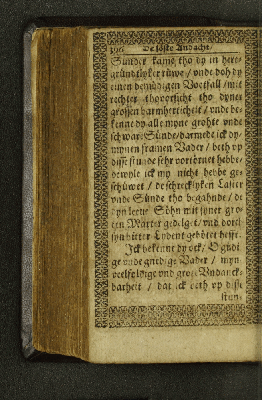 De söste Andacht/
Sünder kame tho dy in herz-
gründtlyker rüwe / vnde doh dy
einen demödigen Voetfall / mit
rechter thovorsicht tho dyner
groten barmherticheit / vnde be-
kenne dy alle myne grohte vnde
schware Sünde / darmede ick dy-
mynen framen Vader / beth vp
disse stunde sehr vortörnet hebbe
dewyle ick my nicht hebbe ge-
schüwet / de schrecklyken Laster
vnde Sünde tho begahnde / de
dyn leeue Söhn mit syner gro-
ten Marter gedelget / vnd dorch
syn bitter Lydent geböter hefft.
Ick bekenne dy ock / O gnedi-
ge vnde gnedige Vader / myn
veelfoldige vnd grote Vndanck-
barheit / dat ick beth vp disse
stun-